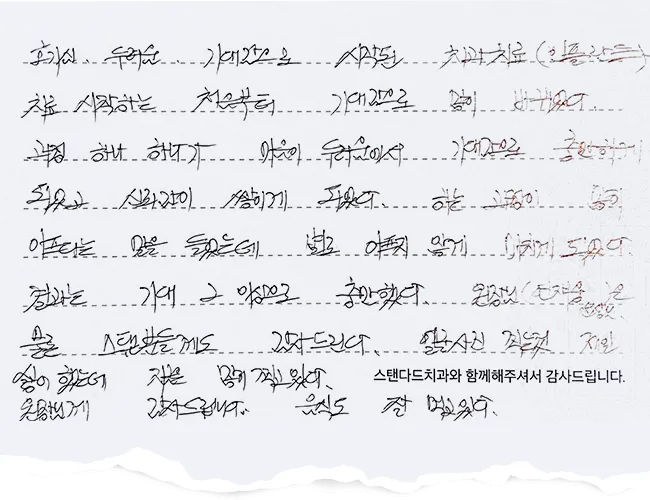 호기심, 두려움, 기대감으로 시작된 치과치료(임플란트)
치료 시작하는 처음부터 기대감으로 많이 바뀌었다.
과정 하나 하나가 마음이 두려움에서 기대감으로 충만하게
되었고 신뢰감이 쌓이게 되었다. 하는 과정이 많이
아프다는 말을 들었는데 별로 아프지 않게 마치게 되었다.
결과는 기대 그 이상으로 충만했다. 원장님( )은
물론 스탠다드들께도 감사드린다. 일반사진 찍는것 제일
싫어 했는데 지금은 많이 찍고 있다.
스탠다드치과와 함께해주셔서 감사드립니다.
원장님께 감사드립니다. 음식도 잘 먹고 있다.